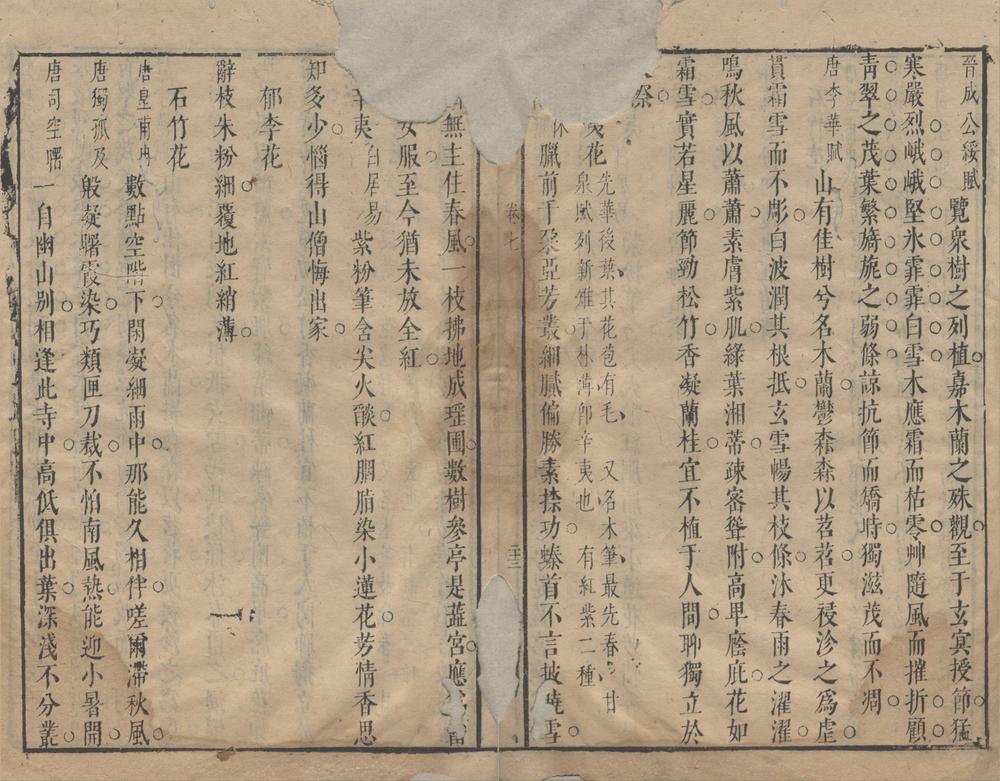 晉成公綏賦 覽衆樹之列植嘉木蘭之殊觀至于玄冥授節猛
寒嚴烈峨峨堅氷霏霏白雪木應霜而枯零艸隨風而摧折顧
青翠之茂葉繁旖旎之弱條諒抗節而矯時獨滋茂而不凋
唐李華賦 山有佳樹兮名木蘭鬱森森以苕苕更祲沴之爲虐
貫霜雪而不彫白波潤其根抵玄雪暢其枝條沐春雨之濯濯
鳴秋風以蕭蕭素膚紫肌綠葉湘蒂疎密聳附高卑䕃庇花如
霜雪實若星麗節勁松竹香凝蘭桂宜不植于人間聊獨立於
花 先華後葉其花苞有毛 又名木筆最先春 甘
泉賦列新雉于林薄卽辛夷也 有紅紫二種
臘前千朶亞芳叢細膩偏勝素捺功螓首不言披曉雪
無主住春風一枝拂地成瑶圃數樹參亭是蕋宮應
女服至今猶未放全紅
辛夷 白居易 紫粉筆含尖火燄紅胭脂染小蓮花芳情香思
知多少惱得山僧悔出家
郁李花
辭枝朱粉細覆地紅綃薄
石竹花
唐皇甫冉 數點空階下閑凝細雨中那能久相伴嗟爾滯秋風
唐獨孤及 般凝曙霞染巧類匣刀裁不怕南風熱能迎小暑開
唐司空曙 一自幽山別相逢此寺中高低俱出葉深淺不分叢
卷七
二十三